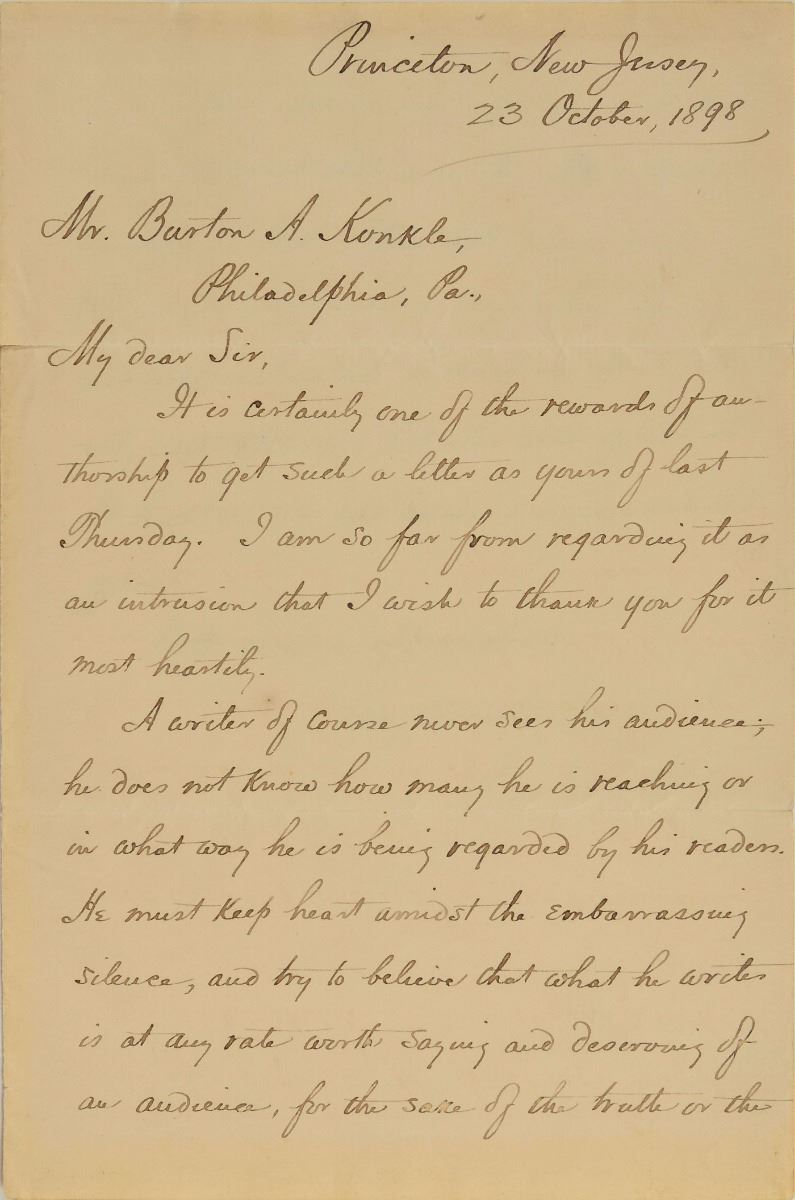 Princeton, New Jersey,
23 October, 1898
Mr. Burton A. Konkle,
Philadelphia, Pa.,
My dear Sir,
It is certainly one of the rewards of au-
thorship to get such a letter as yours of last
Thursday. I am so far from regarding it as
an intrusion that I wish to thank you for it
most heartily.
A writer of course never sees his audience;
he does not know how many he is reaching or
in what way he is being regarded by his readers.
He must keep heart amidst the embarrassing
silence, and try to believe that what he writes
is at any rate worth saying and deserving of
an audience, for the sake of the truth or the